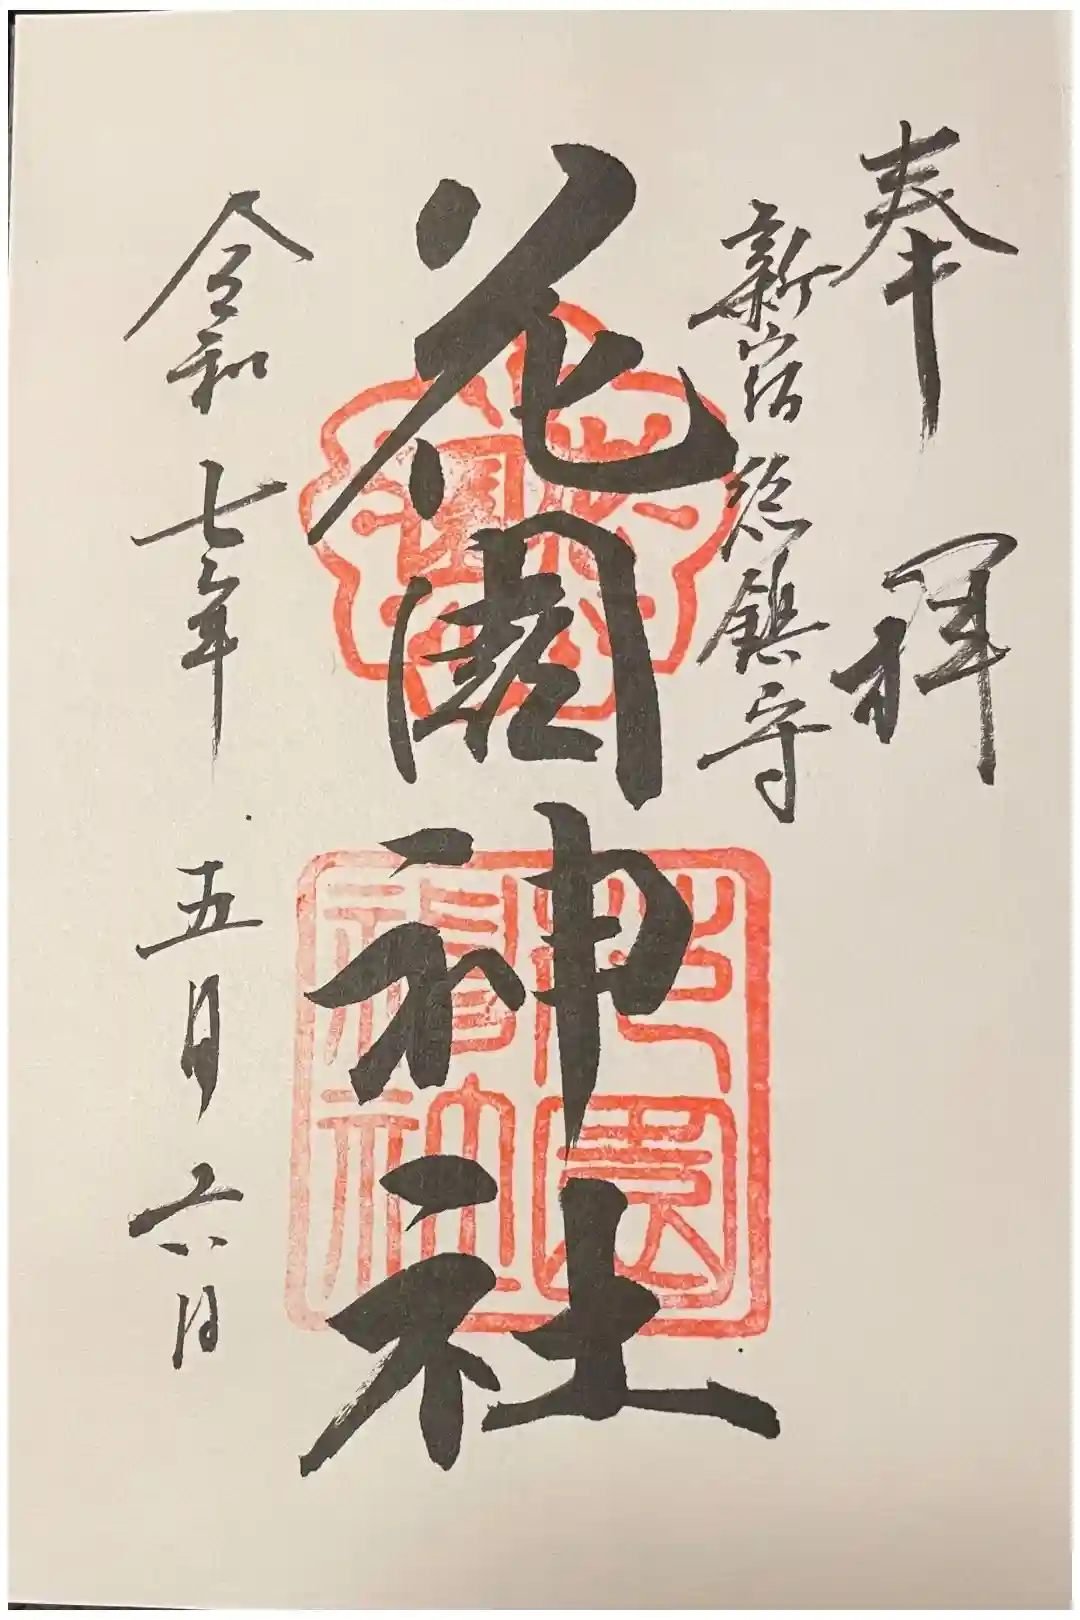 奉拝
新宿総鎮守
花園神社
令和七年五月六日
花園神社